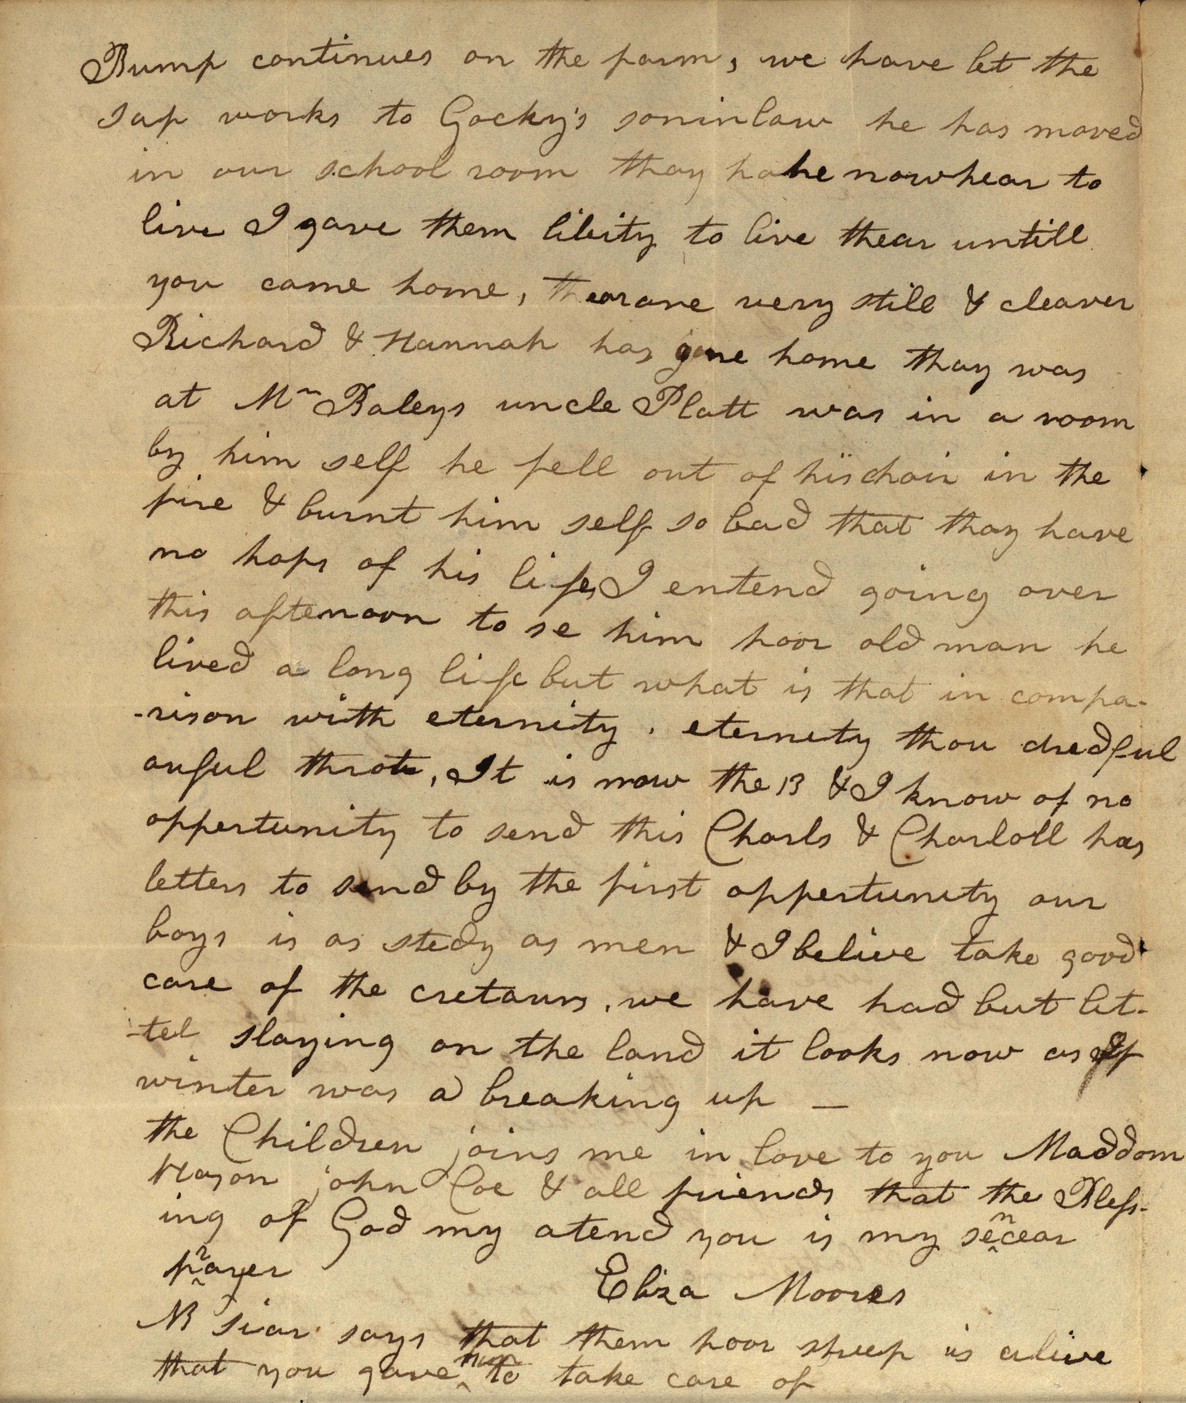 Bump continues on the farm, we have let the
sap works to Gocky's soninlaw he has moved
in our school room thay ha he nowhear to
live I gave them libity to live thear untill
you came home, thearare very still & cleaver
Richard & Hannah has gone home thay was
at Mr Baleys uncle Platt was in a room
by him self he fell out of his chair in the
fire & burnt him self so bad that thay have
no hops of his life, I entend going over
this afternoon to se him poor old man he
lived a long life but what is that in compa-
-rison with eternity. eternity thou dredful
auful , It is now the 13 & I know of no
oppertunity to send this Charls & Charlott has
letters to send by the first oppertunity our
boys is as stedy as men & I belive take good
care of the cretaurs, we have had but lit-
-tel slaying on the land it looks now as if
winter was a breaking up —
the Children joins me in love to you Maddom
Hason john Coe & all friends that the Bless-
ing of God my atend you is my sencear
prayer
Eliza Moores
NB siar says that them poor sheep is alive
that you gave him to take care of